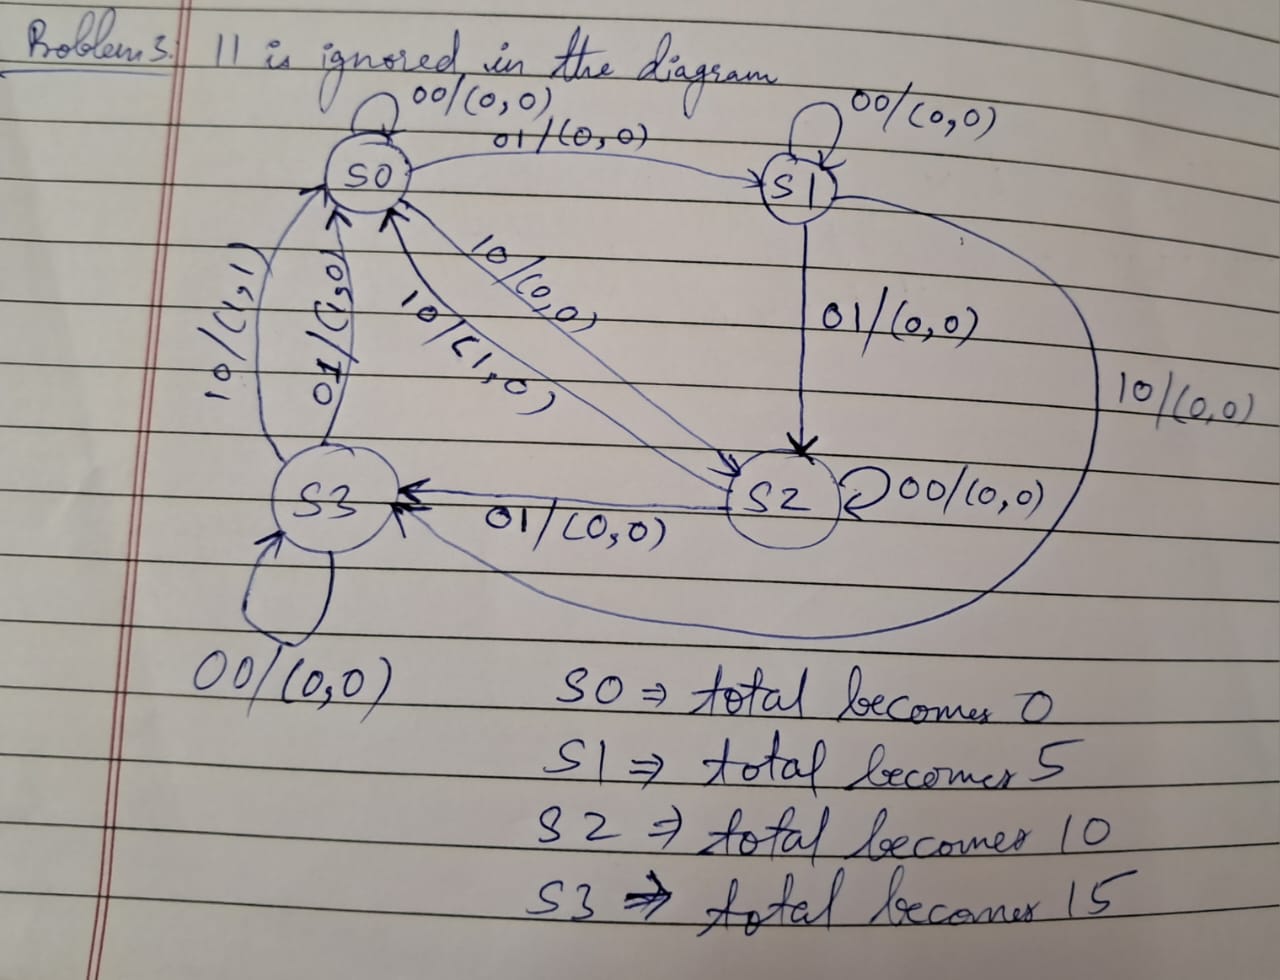 Problem 3. 11 is ignored in the diagram
00/(0,0)
00/(0,0)
01/(0,0)
S0
S1
10/(0,0)
10/(1,1)
01/(1,0)
10/(1,0)
01/(0,0)
10/(0,0)
S3
S2
00/(0,0)
01/(0,0)
00/(0,0)
S0 ⇒ total becomes 0
S1 ⇒ total becomes 5
S2 ⇒ total becomes 10
S3 ⇒ total becomes 15